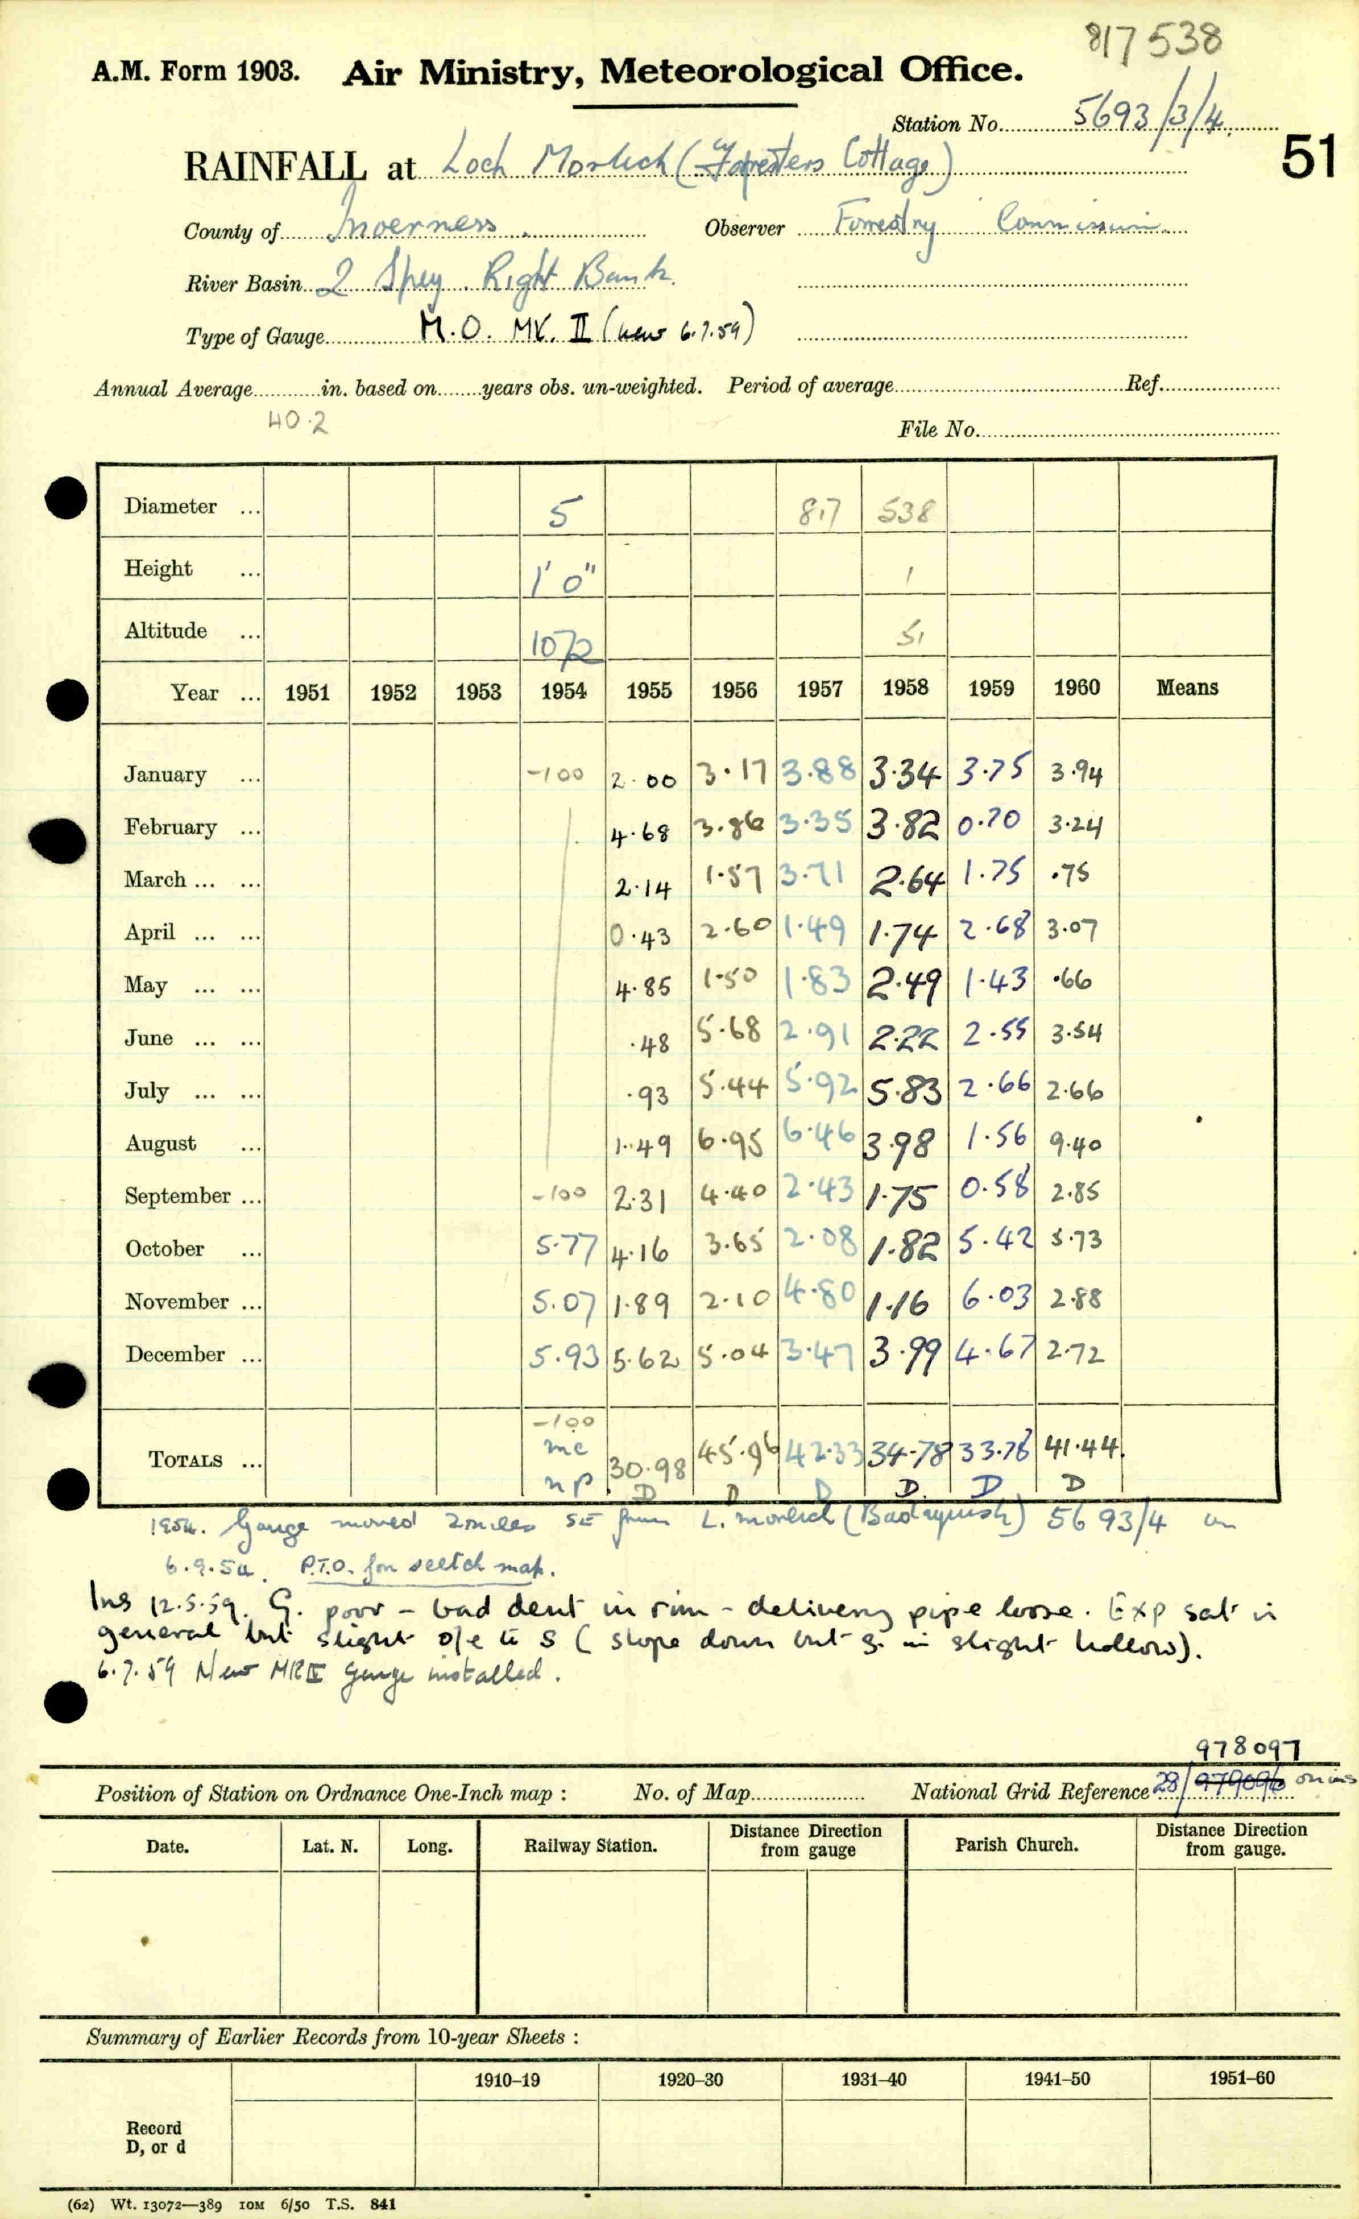 817538
A.M. Form 1903. Air Ministry, Meteorological Office.
Station No. 5693/3/4
51
RAINFALL at Loch Morlich (Foresters Cottage)
County of Inverness. Observer Forrestry Commission.
River Basin 2 Spey. Right Bank.
Type of Gauge M.O. MK. II (new 6.7.59)
Annual Average in. based on years obs. un-weighted. Period of average Ref.
40.2
File No.
Diameter ... 5 817 538
Height ... 1' 0" 1
Altitude ... 1072 51
Year ... 1951 1952 1953 1954 1955 1956 1957 1958 1959 1960 Means
January ... -100 2.00 3.17 3.88 3.34 3.75 3.94
February ... 4.68 3.86 3.35 3.82 0.70 3.24
March ... ... 2.14 1.57 3.71 2.64 1.75 .75
April ... ... 0.43 2.60 1.49 1.74 2.68 3.07
May ... ... 4.85 1.50 1.83 2.49 1.43 .66
June ... ... .48 5.68 2.91 2.22 2.55 3.54
July ... ... .93 5.44 5.92 5.83 2.66 2.66
August ... 1.49 6.95 6.46 3.98 1.56 9.40
September ... -100 2.31 4.40 2.43 1.75 0.58 2.85
October ... 5.77 4.16 3.65 2.08 1.82 5.42 5.73
November ... 5.07 1.89 2.10 4.80 1.16 6.03 2.88
December ... 5.93 5.62 5.04 3.47 3.99 4.67 2.72
-100
TOTALS ... inc 30.98 45.96 42.33 34.78 33.78 41.44
np. D D D D. D D
1954. Gauge moved 2 miles SE from L. morlich (Badaguish) 5693/4 on
6.9.54. P.T.O. for sketch map.
Ins 12.5.59. G. poor - bad dent in rim - delivery pipe loose. Exp sat in
general but slight o/e to S (slope down but g. in slight hollow).
6.7.59 New MKII gauge installed.
978097
Position of Station on Ordnance One-Inch map : No. of Map National Grid Reference 28/979096 on ins
Date. Lat. N. Long. Railway Station. Distance Direction from gauge Parish Church. Distance Direction from gauge.
Summary of Earlier Records from 10-year Sheets :
1910–19 1920–30 1931–40 1941–50 1951–60
Record
D, or d
(62) Wt. 13072—389 10M 6/50 T.S. 841